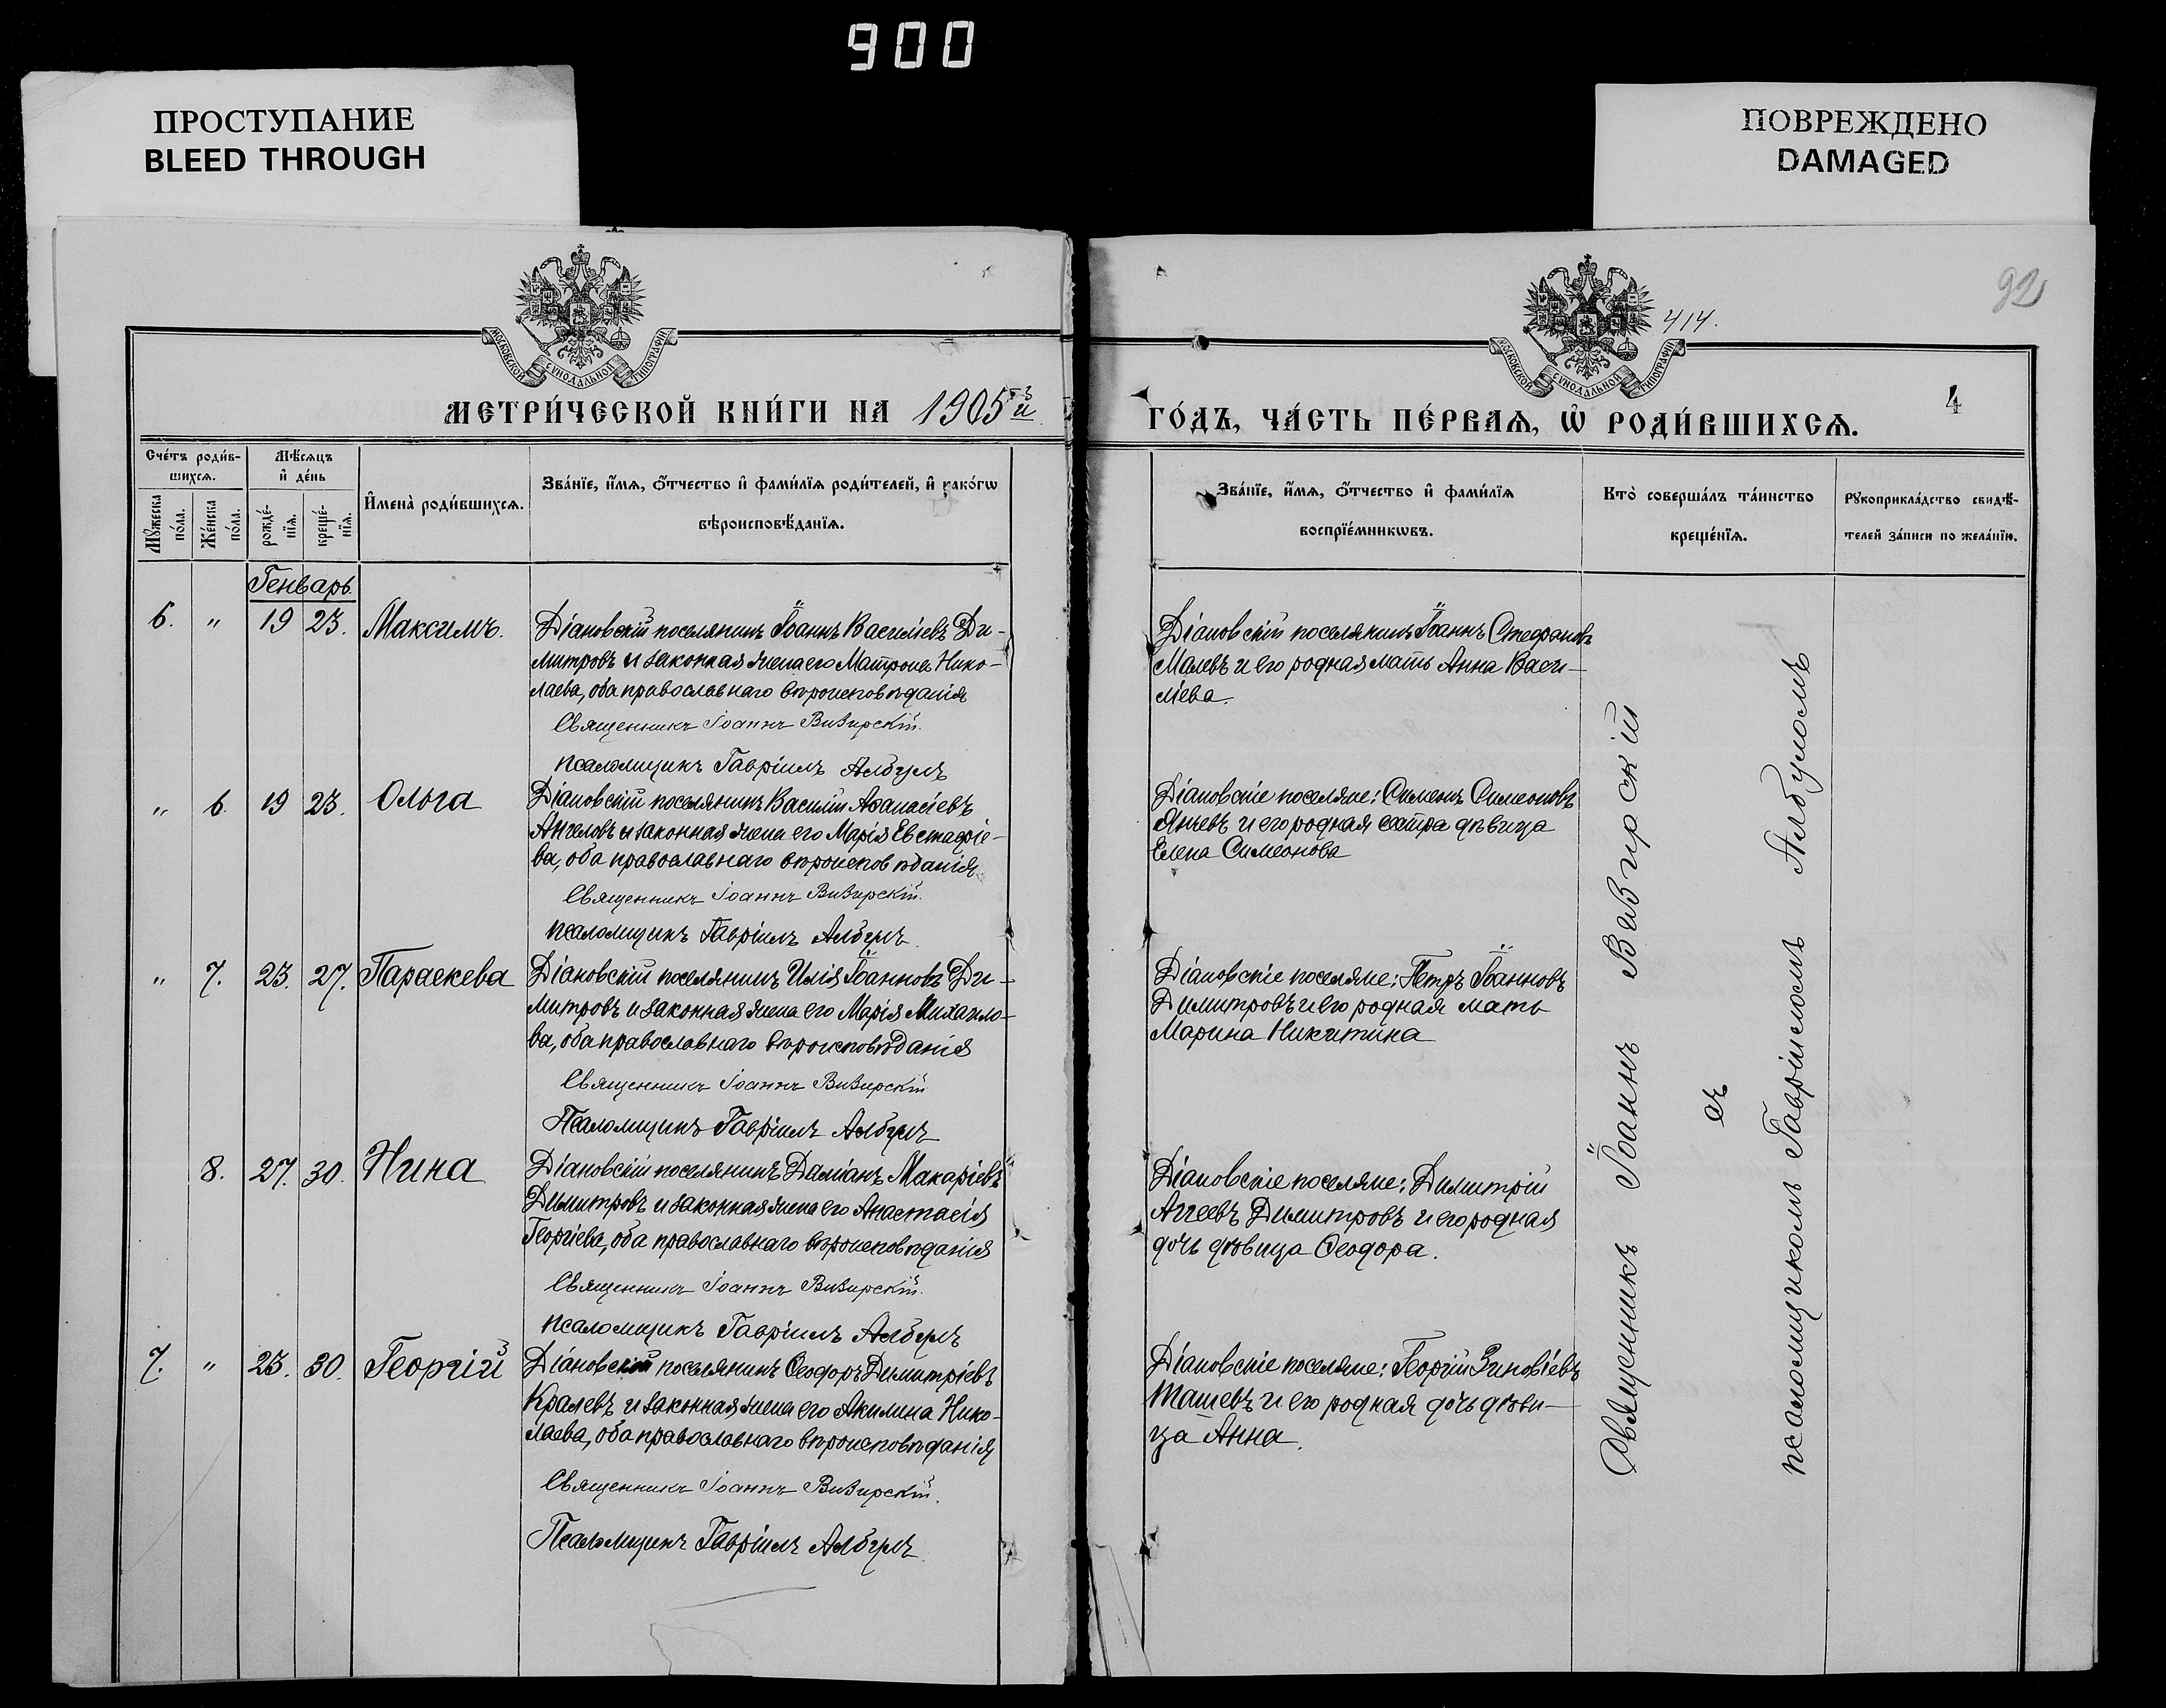 900
ПРОСТУПАНИЕ
BLEED THROUGH
ПОВРЕЖДЕНО
DAMAGED
92
414.
4
МОСКОВСКОЙ СѴНОДАЛЬНОЙ ТИПОГРАФІИ
МОСКОВСКОЙ СѴНОДАЛЬНОЙ ТИПОГРАФІИ
МЕТРИ́ЧЕСКОЙ КНИ́ГИ НА 1905й
ГО́ДЪ, ЧА́СТЬ ПЕ́РВАѦ, Ѡ҆ РОДИ́ВШИХСѦ.
Сче́тъ роди́в-
шихсѧ.
Мѣ́сѧцъ
и҆ де́нь
Мꙋ́жеска
по́ла.
Же́нска
по́ла.
рожде́-
нїѧ.
креще́-
нїѧ.
И҆мена̀ роди́вшихсѧ.
Зва́нїе, и҆́мѧ, ѻ҆́тчество и҆ фами́лїѧ роди́телей, и҆ како́гѡ
вѣроисповѣ́данїѧ.
Зва́нїе, и҆́мѧ, ѻ҆́тчество и҆ фами́лїѧ
воспрїе́мникѡвъ.
Кто̀ соверша́лъ та́инство
креще́нїѧ.
Рꙋкоприкла́дство свидѣ́-
телей за́писи по жела́нїю.
Генварь
6. " 19 23. Максимъ.
Діановскій поселянинъ Іоаннъ Василіевъ Ди-
митровъ и законная жена его Матрона Нико-
лаева, оба православнаго вѣроисповѣданія
Священникъ Іоаннъ Визирскій.
псаломщикъ Гавріилъ Албулъ
Діановскій поселянинъ Іоаннъ Стефановъ
Малевъ и его родная мать Анна Васи-
ліева.
" 6. 19 23. Ольга
Діановскій поселянинъ Василій Аѳанасіевъ
Ангеловъ и законная жена его Марія Евстафіе-
ва, оба православнаго вѣроисповѣданія
Священникъ Іоаннъ Визирскій.
псаломщикъ Гавріилъ Албулъ
Діановскіе поселяне: Симеонъ Симеоновъ
Янчевъ и его родная сестра дѣвица
Елена Симеонова
" 7. 23. 27. Параскева
Діановскій поселянинъ Илія Іоанновъ Ди-
митровъ и законная жена его Марія Михаило-
ва, оба православнаго вѣроисповѣданія
Священникъ Іоаннъ Визирскій
Псаломщикъ Гавріилъ Албулъ
Діановскіе поселяне: Петръ Іоанновъ
Димитровъ и его родная мать
Марина Никитина
8. 27. 30. Нина
Діановскій поселянинъ Даміанъ Макаріевъ
Димитровъ и законная жена его Анастасія
Георгіева, оба православнаго вѣроисповѣданія
Священникъ Іоаннъ Визирскій.
псаломщикъ Гавріилъ Албулъ
Діановскіе поселяне: Димитрій
Аггеевъ Димитровъ и его родная
дочь дѣвица Ѳеодора.
7. " 23. 30. Георгій
Діановскій поселянинъ Ѳеодоръ Димитріевъ
Кралевъ и законная жена его Акилина Нико-
лаева, оба православнаго вѣроисповѣданія
Священникъ Іоаннъ Визирскій.
Псаломщикъ Гавріилъ Албулъ
Діановскіе поселяне: Георгій Зиновіевъ
Ташевъ и его родная дочь дѣви-
ца Анна.
Священникъ Іоаннъ Визирскій
съ
псаломщикомъ Гавріиломъ Албуломъ